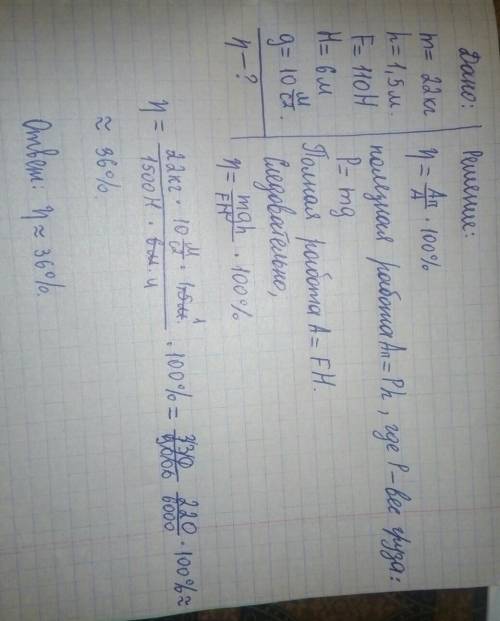 Дано:
m = 22кг
h = 1,5м.
F = 110Н
H = 6м
g = 10 м/с2.
η - ?
Решение:
η = Ап/А · 100%
полезная работа Ап = Ph, где P - вес груза:
P = mg
Полная работа А = FH.
Следовательно,
η = mgh/FH · 100%
η = 22кг · 10 м/с2 · 1,5м. 1 / 1500Н · 6м. 4 · 100% = 330/9000 220/6000 · 100% ≈
≈ 36%.
Ответ: η ≈ 36%.